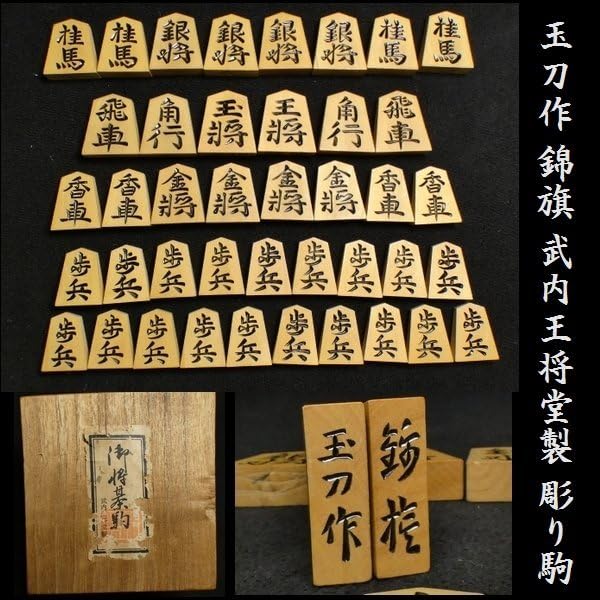 玉刀作 錦旗 武内王将堂製 彫り駒
桂馬 桂馬 銀将 銀将 銀将 銀将 桂馬 桂馬
飛車 角行 玉将 王将 角行 飛車
香車 香車 金将 金将 金将 金将 香車 香車
歩兵 歩兵 歩兵 歩兵 歩兵 歩兵 歩兵 歩兵 歩兵
歩兵 歩兵 歩兵 歩兵 歩兵 歩兵 歩兵 歩兵 歩兵
御将棊駒
玉刀作
錦旗